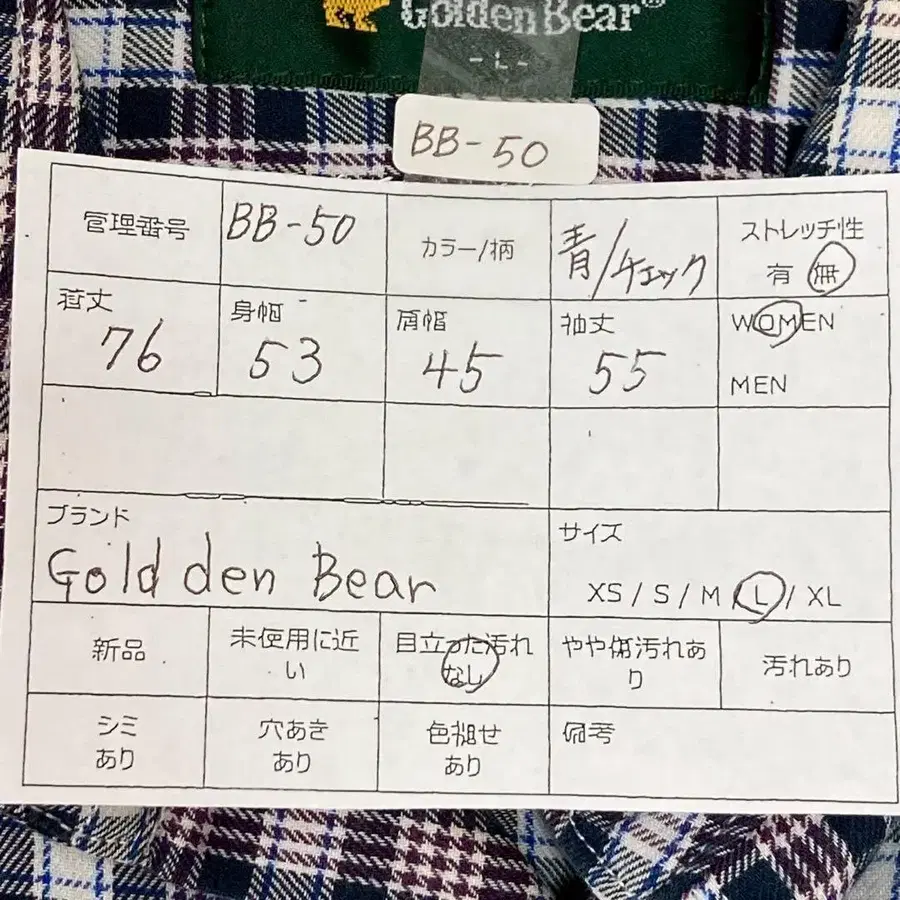 Golden Bear®
- L -
BB-50
管理番号
BB-50
カラー/柄
青/チェック
ストレッチ性
有 無
着丈
76
身幅
53
肩幅
45
袖丈
55
WOMEN
MEN
ブランド
Gold den Bear
サイズ
XS / S / M / L / XL
新品
未使用に近
い
目立った汚れ
なし
やや傷汚れあ
り
汚れあり
シミ
あり
穴あき
あり
色褪せ
あり
備考